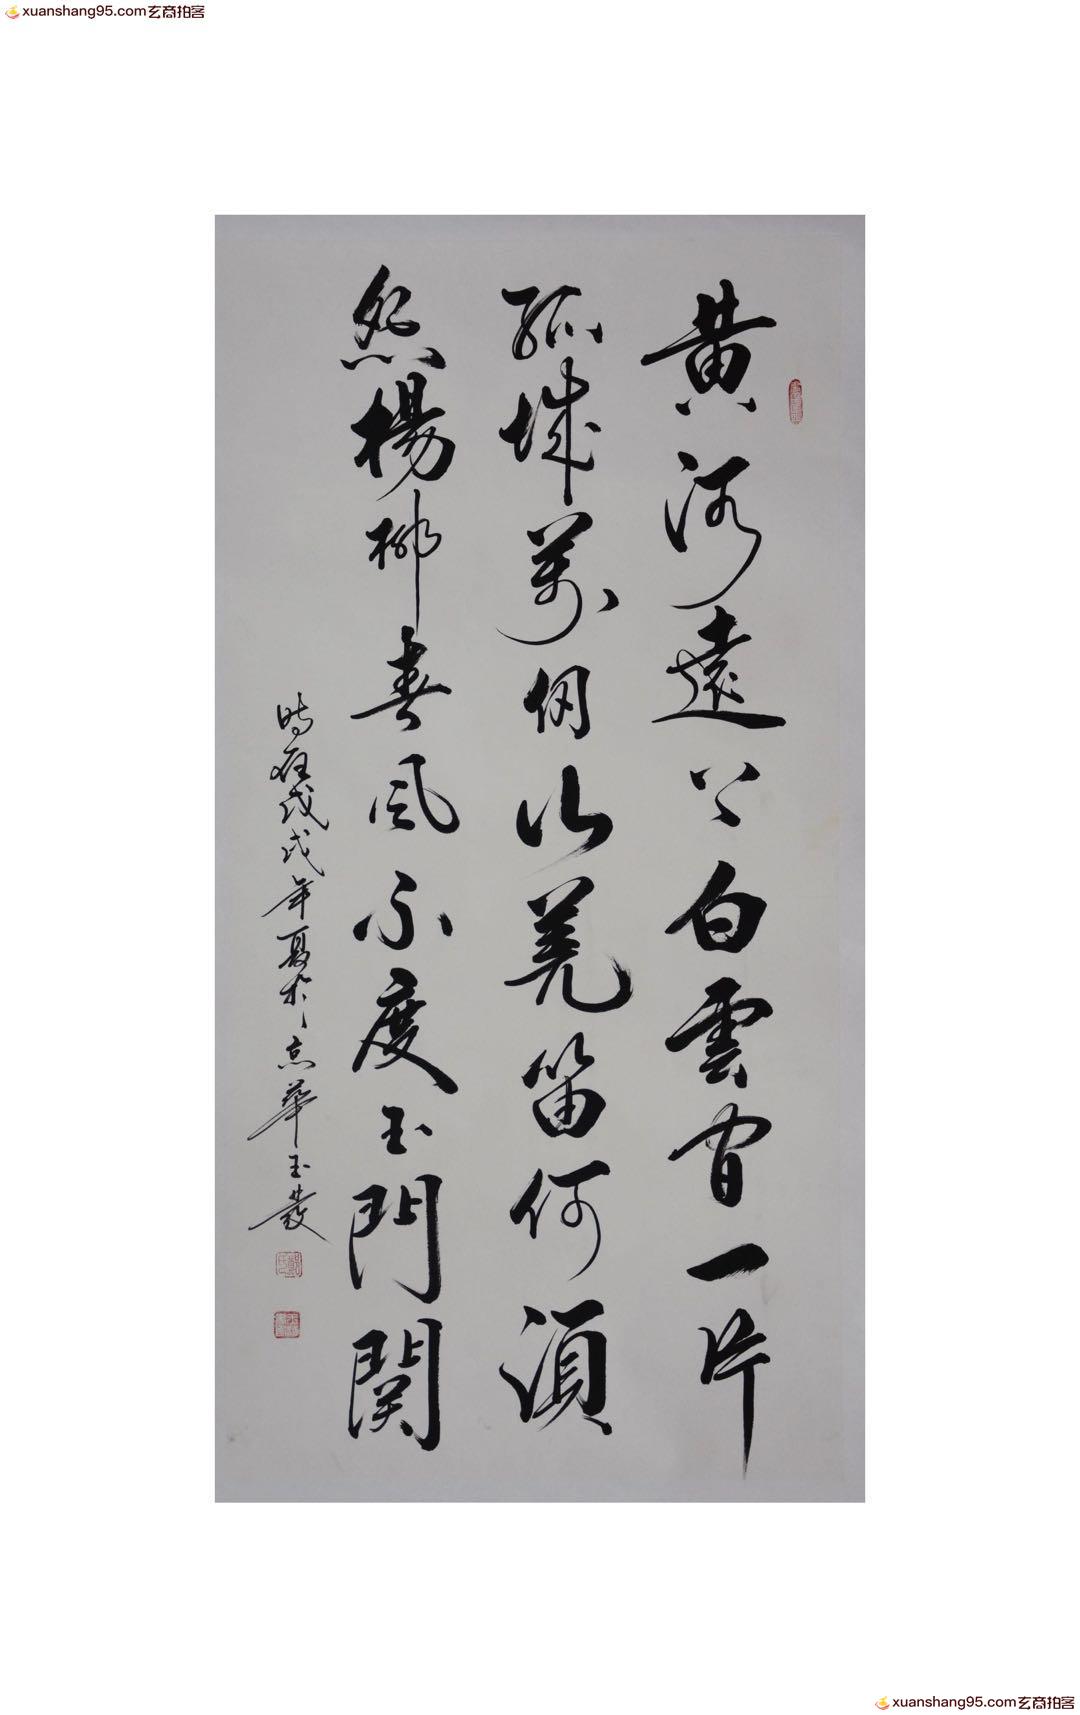 xuanshang95.com玄商拍客
黄河遠上白雲间一片
孤城萬仞山羌笛何須
怨楊柳春風不度玉門関
時在戊戌年夏於京華玉發
xuanshang95.com玄商拍客